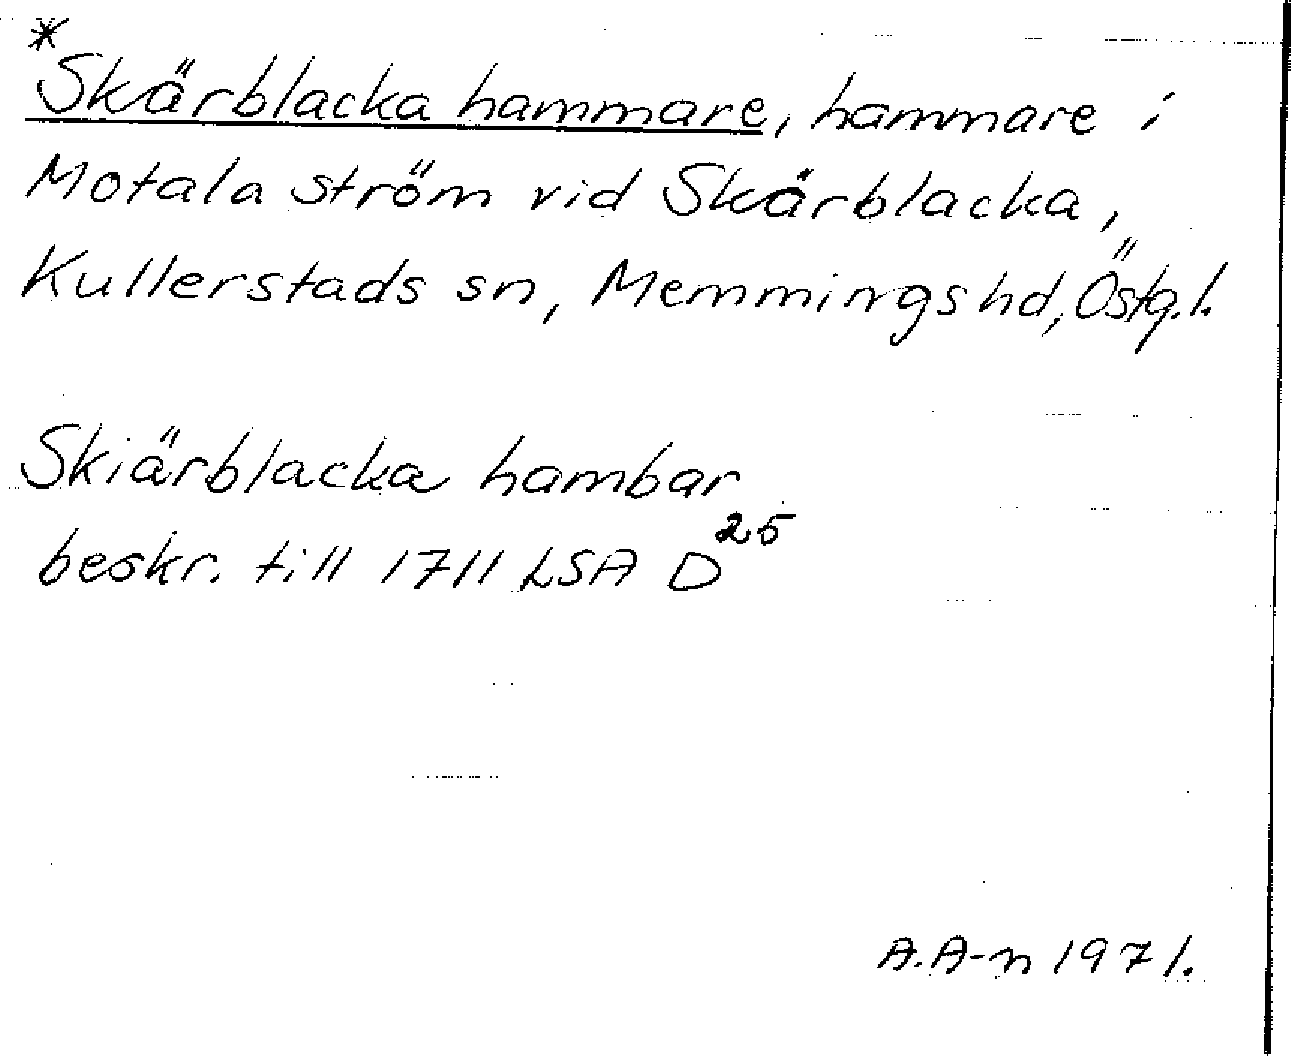 *
Skärblacka hammare, hammare i
Motala ström vid Skärblacka,
Kullerstads sn, Memmings hd, Östg.l.
Skiärblacka hambar
beskr. till 1711 LSA D25
A.A-n 1971.